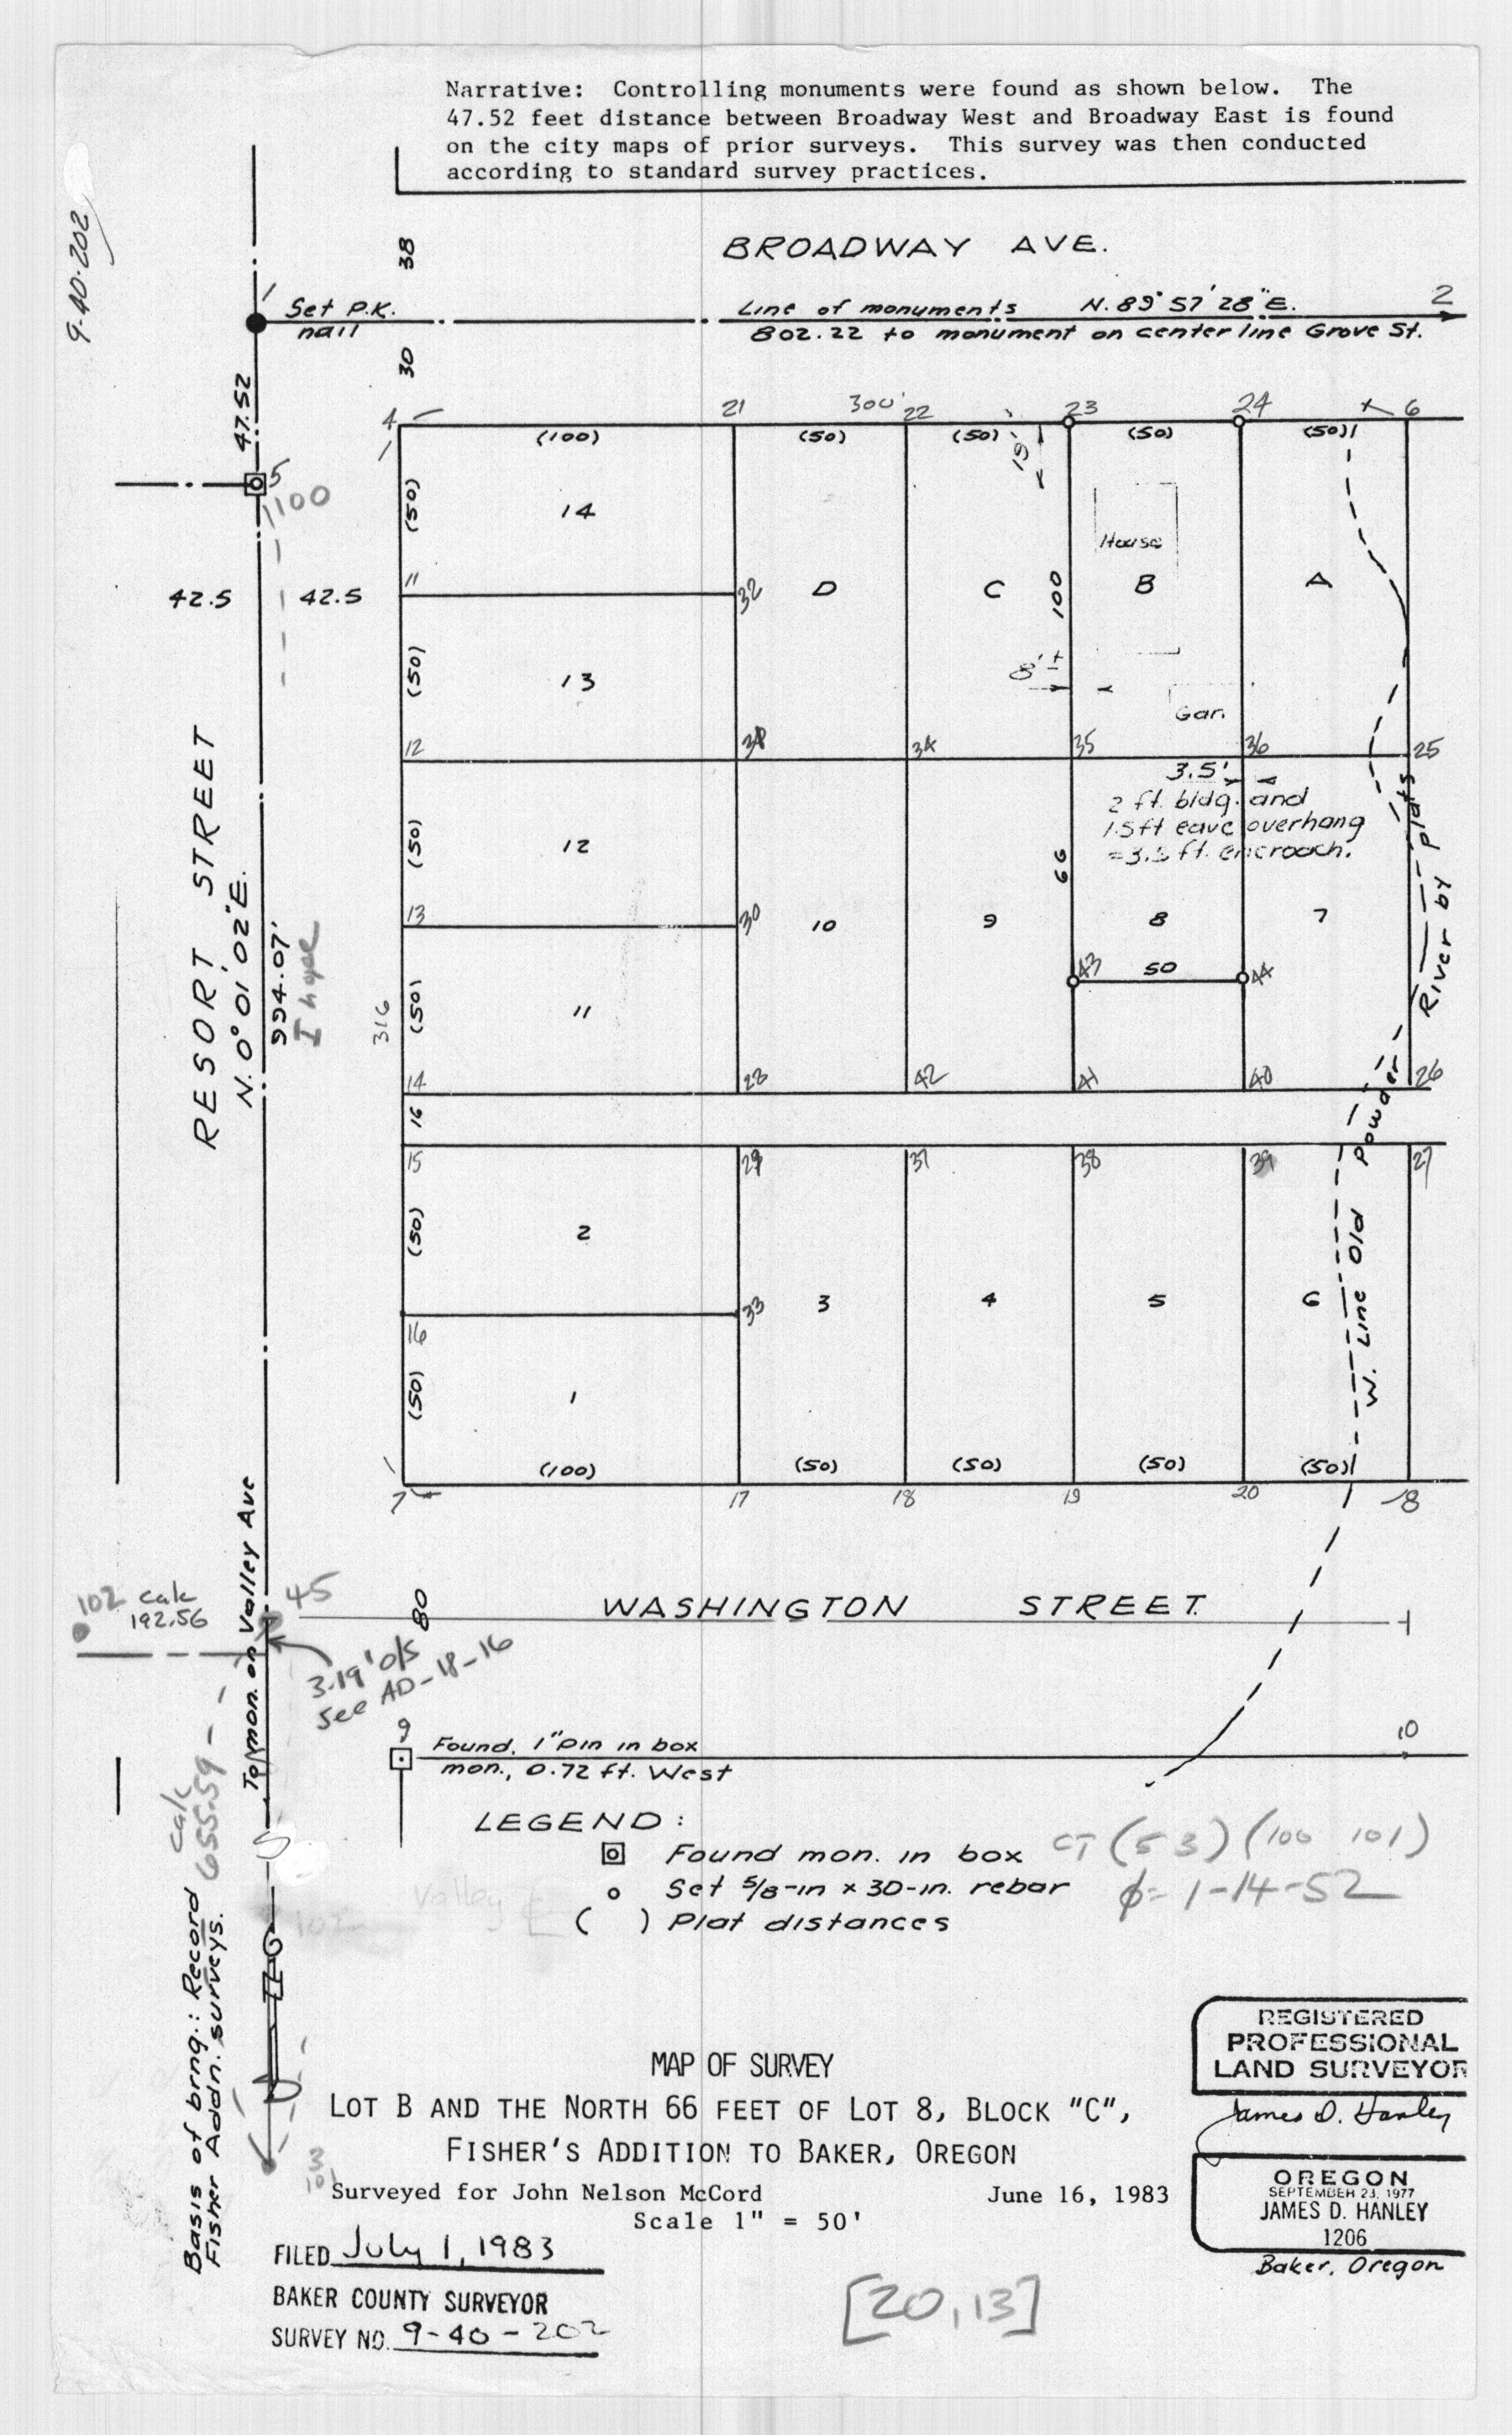 Narrative: Controlling monuments were found as shown below. The
47.52 feet distance between Broadway West and Broadway East is found
on the city maps of prior surveys. This survey was then conducted
according to standard survey practices.
9-40-202
38
BROADWAY AVE.
1
Set P.K.
nail
Line of monuments N. 89° 57' 28" E.
2
802.22 to monument on center line Grove St.
30
47.52
4
21
300'
22
23
24
6
(100)
(50)
(50)
(50)
(50)
19'
5
1100
(50)
14
House
42.5
42.5
11
32
D
C
100
B
A
(50)
13
8'±
Gar.
12
34
35
36
25
3.5'
2 ft. bldg. and
1.5 ft eave overhang
=3.5 ft. encroach.
(50)
12
66
13
30
10
9
8
7
RESORT STREET
N. 0° 01' 02" E.
994.07'
43
50
44
316
(50)
11
River by plats
14
42
41
40
26
16
15
29
37
38
39
27
(50)
2
W. Line Old Powder
33
3
4
5
6
16
(50)
1
(100)
(50)
(50)
(50)
(50)
7
17
18
19
20
8
To mon. on Valley Ave
102 calc
192.56
45
80
WASHINGTON STREET
3.19' o/s
See AD-18-16
9
Found 1" pin in box
mon., 0.72 ft. West
10
calc
655.59
LEGEND:
Found mon. in box
CT (53) (100 101)
Set 5/8-in x 30-in. rebar
φ = 1-14-52
Valley
( ) Plat distances
Basis of brng.: Record
Fisher Addn. surveys.
3
101
REGISTERED
PROFESSIONAL
LAND SURVEYOR
James D. Hanley
OREGON
SEPTEMBER 23, 1977
JAMES D. HANLEY
1206
Baker, Oregon
MAP OF SURVEY
LOT B AND THE NORTH 66 FEET OF LOT 8, BLOCK "C",
FISHER'S ADDITION TO BAKER, OREGON
Surveyed for John Nelson McCord June 16, 1983
Scale 1" = 50'
FILED July 1, 1983
BAKER COUNTY SURVEYOR
SURVEY NO. 9-40-202
[20,13]